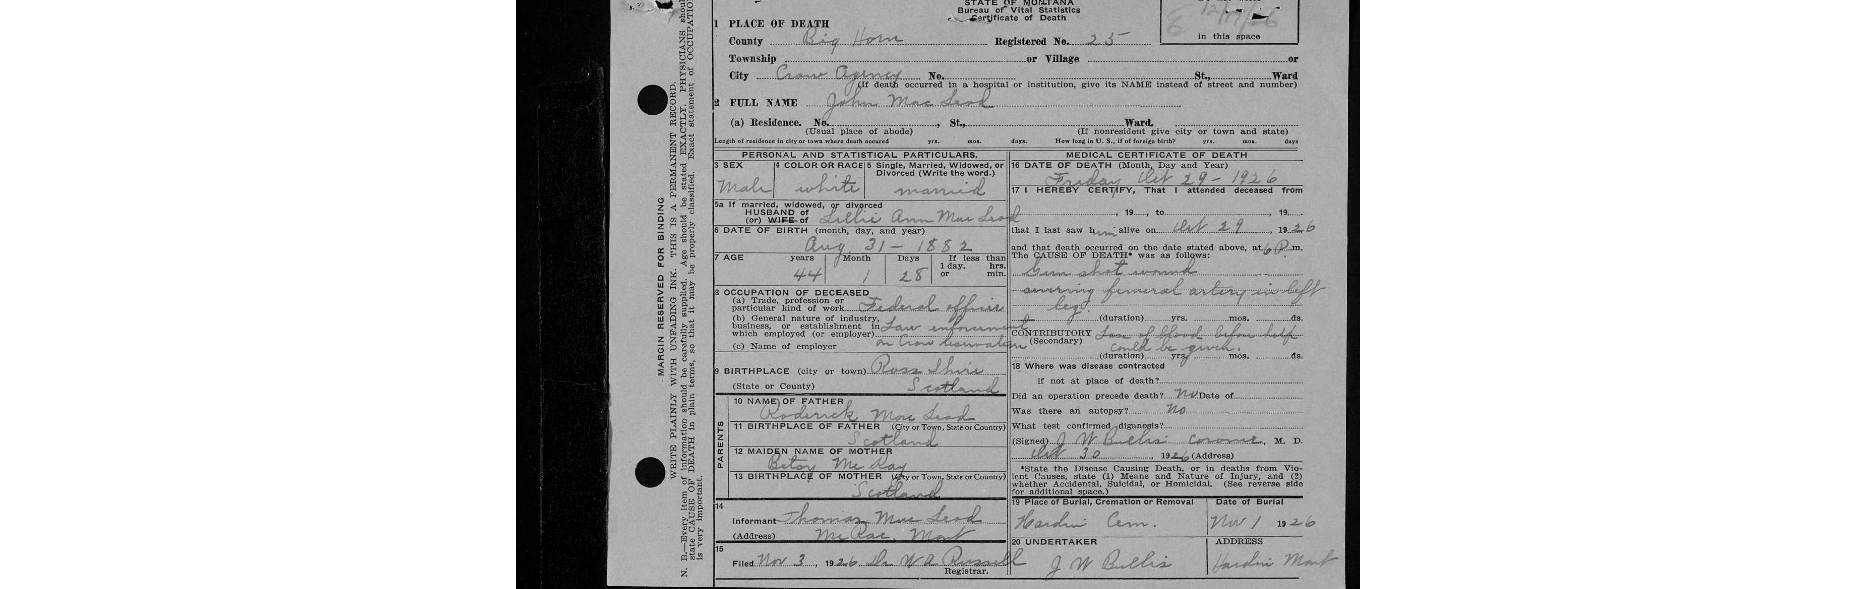 STATE OF MONTANA
Bureau of Vital Statistics
Certificate of Death
in this space
1 PLACE OF DEATH
County Big Horn Registered No. 25
Township or Village or
City Crow Agency No. St., Ward
(If death occurred in a hospital or institution, give its NAME instead of street and number)
2 FULL NAME John Mac Leod
(a) Residence. No. , St., Ward.
(Usual place of abode) (If nonresident give city or town and state)
Length of residence in city or town where death occurred yrs. mos. days. How long in U. S., if of foreign birth? yrs. mos. days
PERSONAL AND STATISTICAL PARTICULARS.
3 SEX 4 COLOR OR RACE 5 Single, Married, Widowed, or
Divorced (Write the word.)
Male white married
5a If married, widowed, or divorced
HUSBAND of
(or) WIFE of Lillie Ann Mac Leod
6 DATE OF BIRTH (month, day, and year)
Aug 31 - 1882
7 AGE years Month Days If less than
1 day. hrs.
or min.
44 1 28
8 OCCUPATION OF DECEASED
(a) Trade, profession or
particular kind of work Federal officer
(b) General nature of industry,
business, or establishment in
which employed (or employer) Law enforcement
(c) Name of employer on Crow Reservation
9 BIRTHPLACE (city or town) Ross Shire
(State or County) Scotland
PARENTS
10 NAME OF FATHER
Roderick Mac Leod
11 BIRTHPLACE OF FATHER (City or Town, State or Country)
Scotland
12 MAIDEN NAME OF MOTHER
Betsy McKay
13 BIRTHPLACE OF MOTHER (City or Town, State or Country)
Scotland
14
Informant Thomas Mac Leod
(Address) McRae, Mont
15
Filed Nov 3, 1926 Dr W A Russell
Registrar.
MEDICAL CERTIFICATE OF DEATH
16 DATE OF DEATH (Month, Day and Year)
Friday Oct 29 - 1926
17 I HEREBY CERTIFY, That I attended deceased from
, 19 , to , 19
that I last saw him alive on Oct 29 1926
and that death occurred on the date stated above, at 6 P. m.
The CAUSE OF DEATH* was as follows:
Gun shot wound
severing femeral artery in left
leg.
(duration) yrs. mos. ds.
CONTRIBUTORY Loss of blood before help
(Secondary) could be given.
(duration) yrs. mos. ds.
18 Where was disease contracted
if not at place of death?
Did an operation precede death? no Date of
Was there an autopsy? no
What test confirmed diganosis?
(Signed) J W Bullis coroner, M. D.
Oct 30 1926 (Address)
*State the Disease Causing Death, or in deaths from Vio-
lent Causes, state (1) Means and Nature of Injury, and (2)
whether Accidental, Suicidal, or Homicidal. (See reverse side
for additional space.)
19 Place of Burial, Cremation or Removal Date of Burial
Hardin Cem. Nov 1 1926
20 UNDERTAKER ADDRESS
J W Bullis Hardin Mont
MARGIN RESERVED FOR BINDING
WRITE PLAINLY WITH UNFADING INK. THIS IS A PERMANENT RECORD.
N. B.—Every item of information should be carefully supplied. Age should be stated EXACTLY. PHYSICIANS shoul
state CAUSE OF DEATH in plain terms, so that it may be properly classified. Exact statement of OCCUPATION
is very important.